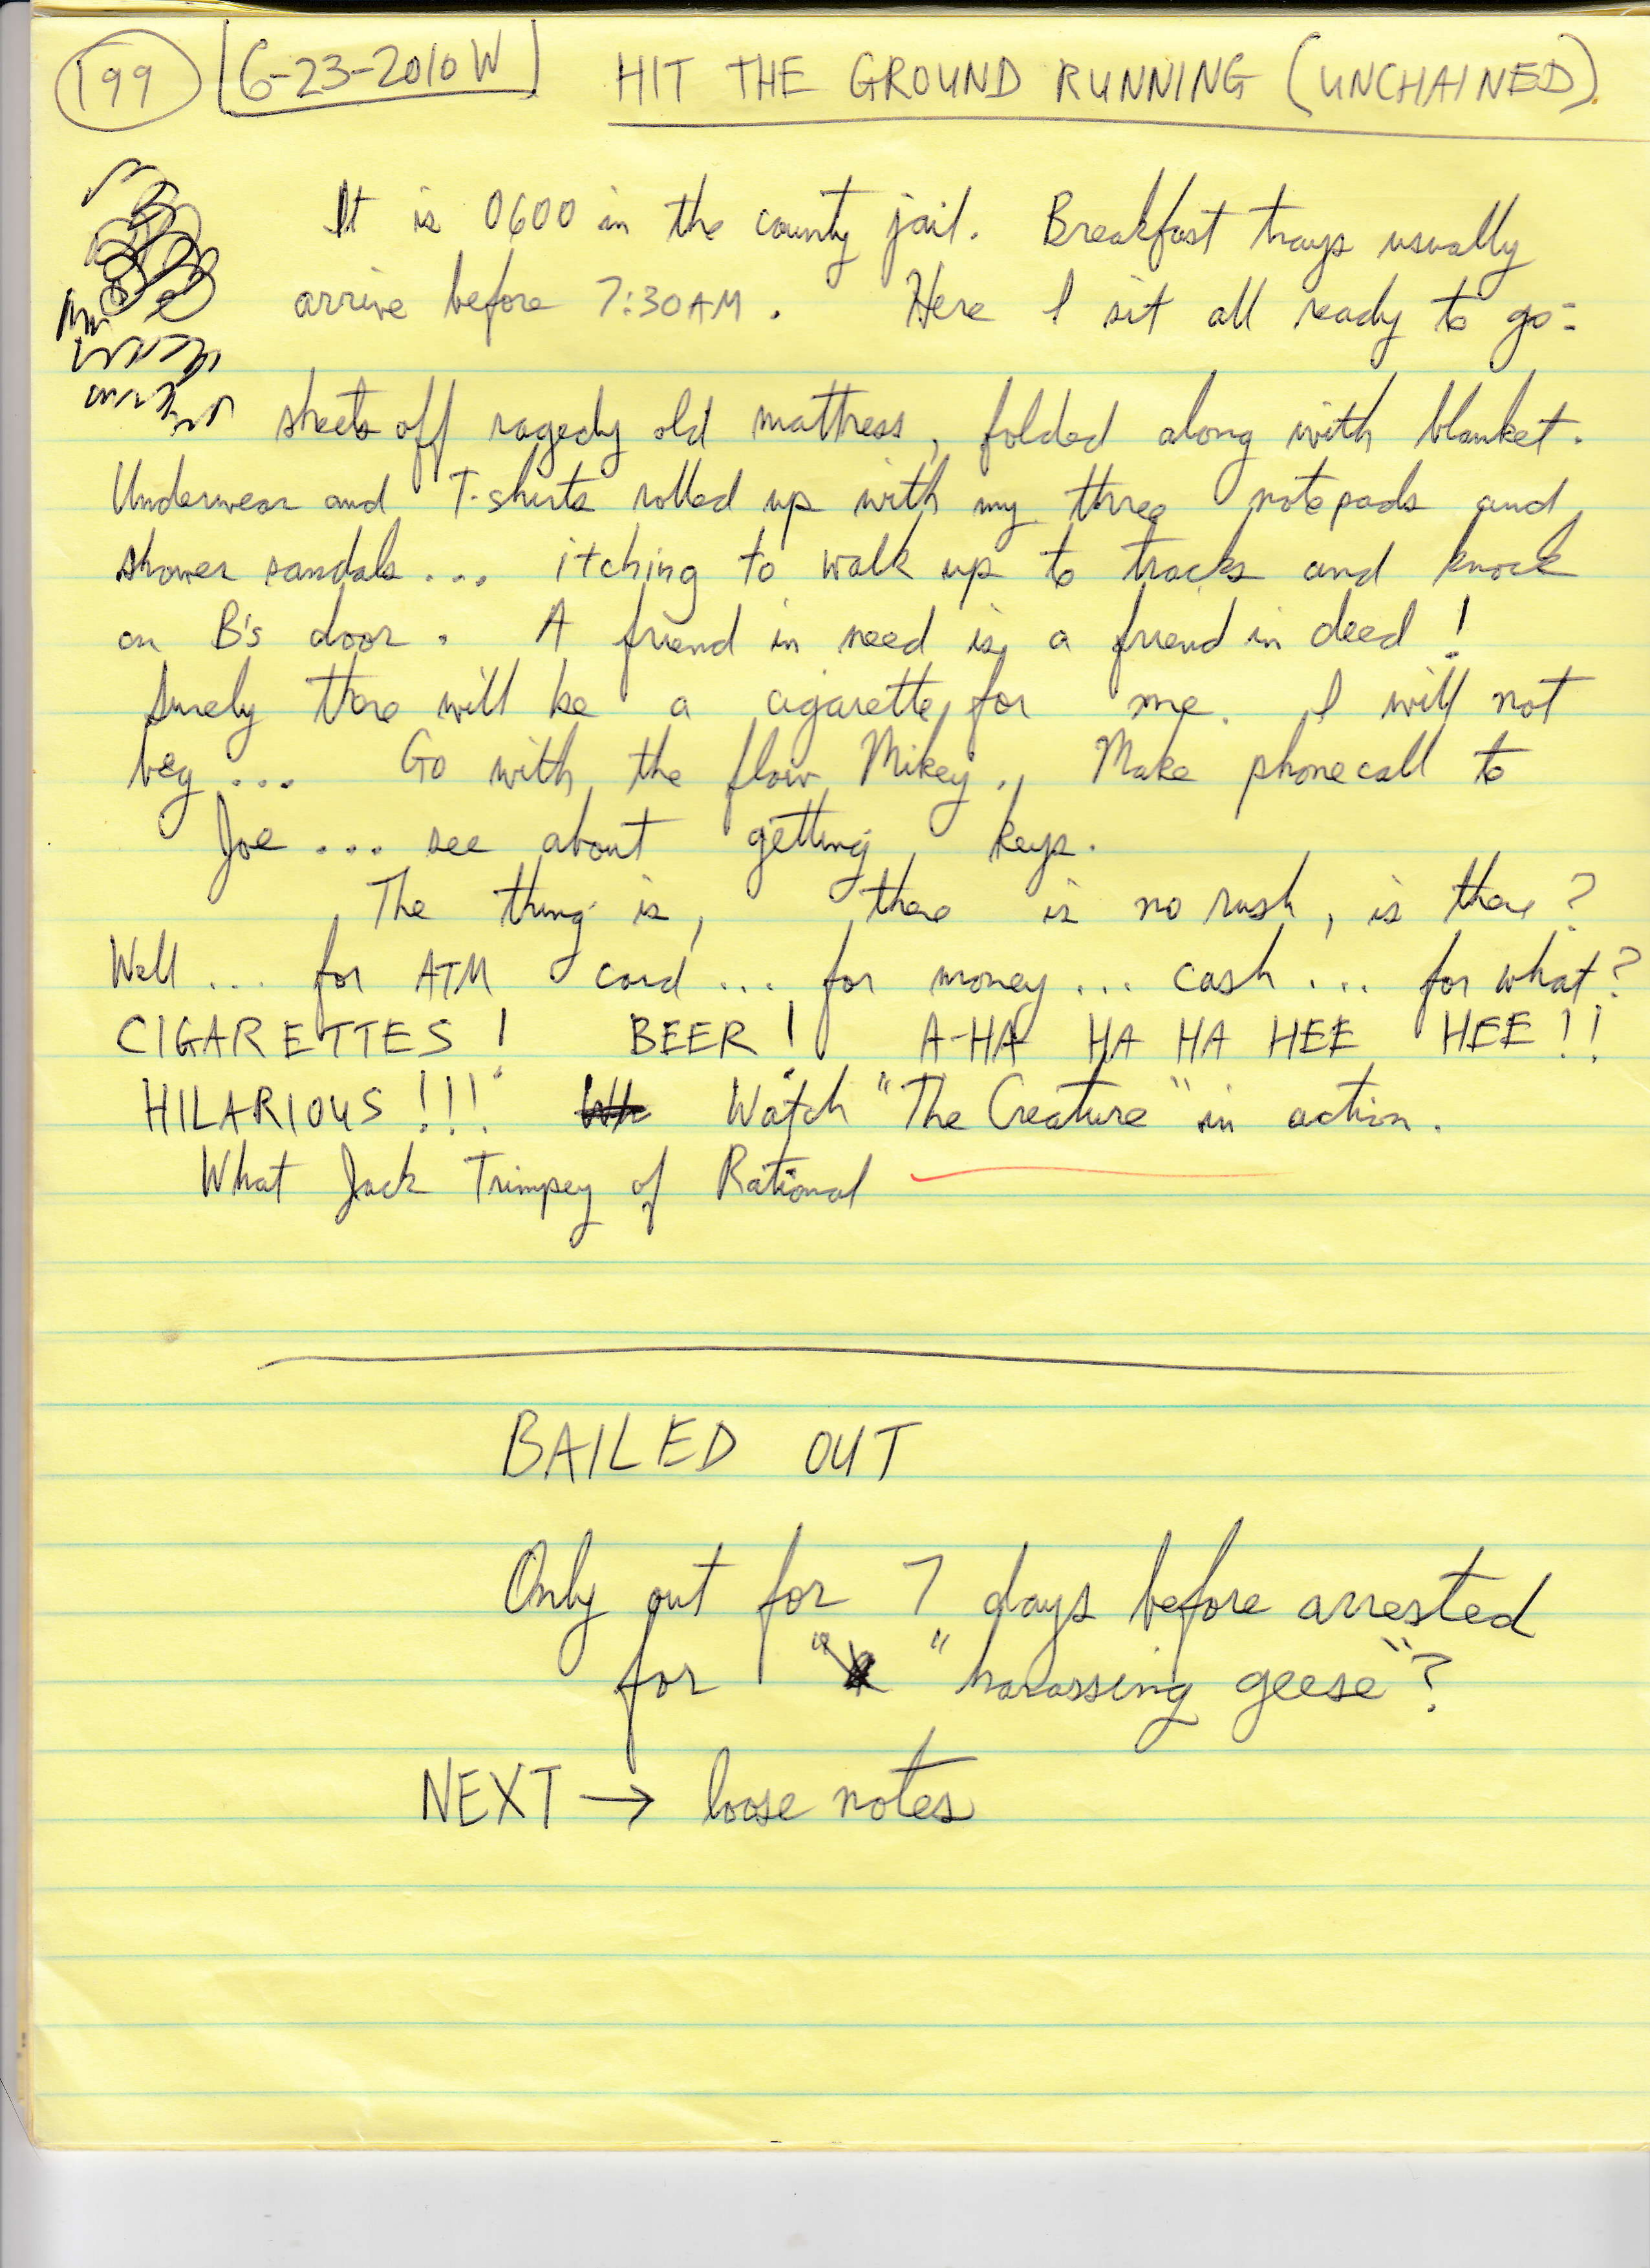 199 6-23-2010 W HIT THE GROUND RUNNING (UNCHAINED)
It is 0600 in the county jail. Breakfast trays usually
arrive before 7:30AM. Here I sit all ready to go:
sheets off ragedy old mattress, folded along with blanket.
Underwear and T-shirts rolled up with my three notepads and
shower sandals... itching to walk up to tracks and knock
on B's door. A friend in need is a friend in deed!
Surely there will be a cigarette for me. I will not
beg... Go with the flow Mikey. Make phonecall to
Joe... see about getting keys.
The thing is, there is no rush, is there?
Well... for ATM card... for money... cash... for what?
CIGARETTES! BEER! A-HA HA HA HEE HEE!!
HILARIOUS!!! Watch "The Creature" in action.
What Jack Trimpey of Rational
BAILED OUT
Only out for 7 days before arrested
for "harassing geese"?
NEXT → loose notes